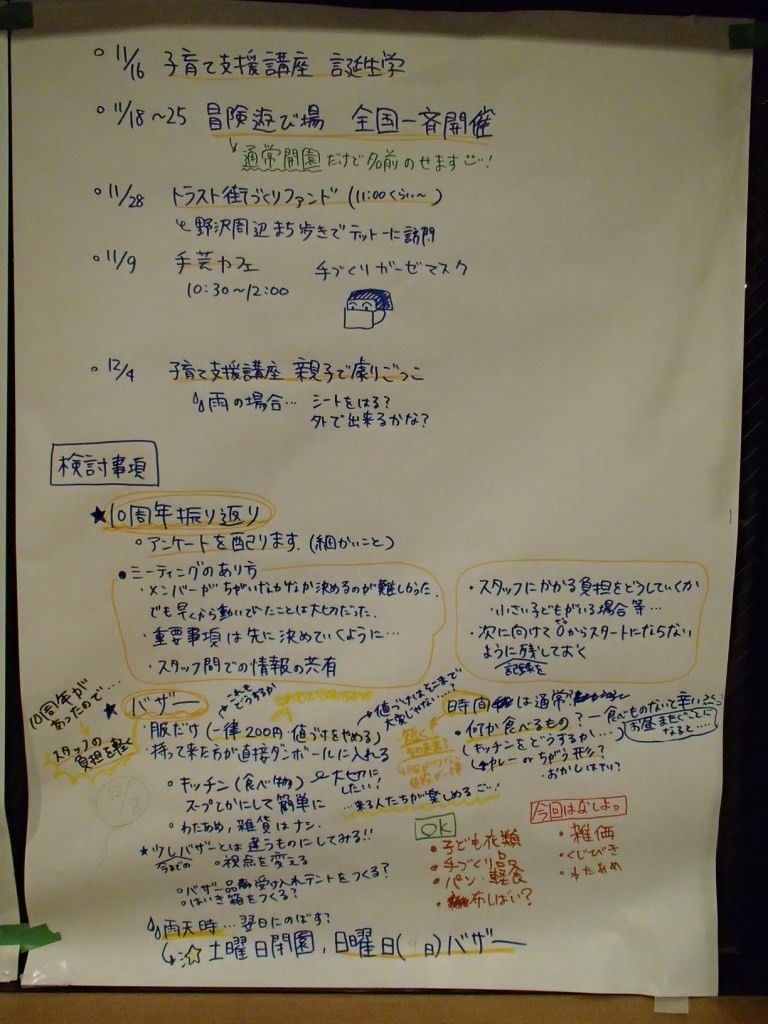 ○ 11/16 子育て支援講座 誕生学
○ 11/18~25 冒険遊び場 全国一斉開催
↳通常開園だけど名前のせます!
○ 11/28 トラスト街づくりファンド (11:00くらい~)
↳野沢周辺まち歩きでテットーに訪問
○ 11/9 手芸カフェ 手づくりガーゼマスク
10:30~12:00
○ 12/4 子育て支援講座 親子で劇ごっこ
雨の場合… シートをはる?
外で出来るかな?
検討事項
★10周年振り返り
○アンケートを配ります.(細かいこと)
●ミーティングのあり方
・メンバーがちがいなかなか決めるのが難しかった.
でも早くから動いていたことは大切だった.
・重要事項は先に決めていくように…
・スタッフ間での情報の共有
・スタッフにかかる負担をどうしていくか
・小さい子どもがいる場合等…
・次に向けて0からスタートにならない
ように残しておく
記録を
10周年が
あったので…
スタッフの
負担を軽く
★バザー
これも
どうするか
・服だけ(一律200円・値づけをやめる)
・持って来た方が直接ダンボールに入れる
値づけはそこまで
大変じゃない…?
○キッチン(食べ物)
スープとかにして簡単に
大切に
したい!
…来る人たちが楽しめる
○わたあめ,雑貨はナシ.
★少しバザーとは違うものにしてみる!!
今までの
○視点を変える
○バザー品受け入れテントをつくる?
○はいき箱をつくる?
雨天時…翌日にのばす?
↳☆土曜日開園,日曜日(9日)バザー
時間は通常?
・何か食べるもの?ー食べものないと辛い
お昼またぐことに
なると…
(キッチンをどうするか…)
↳カレーorちがう形?
・おかしはナシ?
OK
・子ども衣類
・手づくり品
・パン・軽食
今回はなしよ。
・雑価
・くじびき
・わたあめ